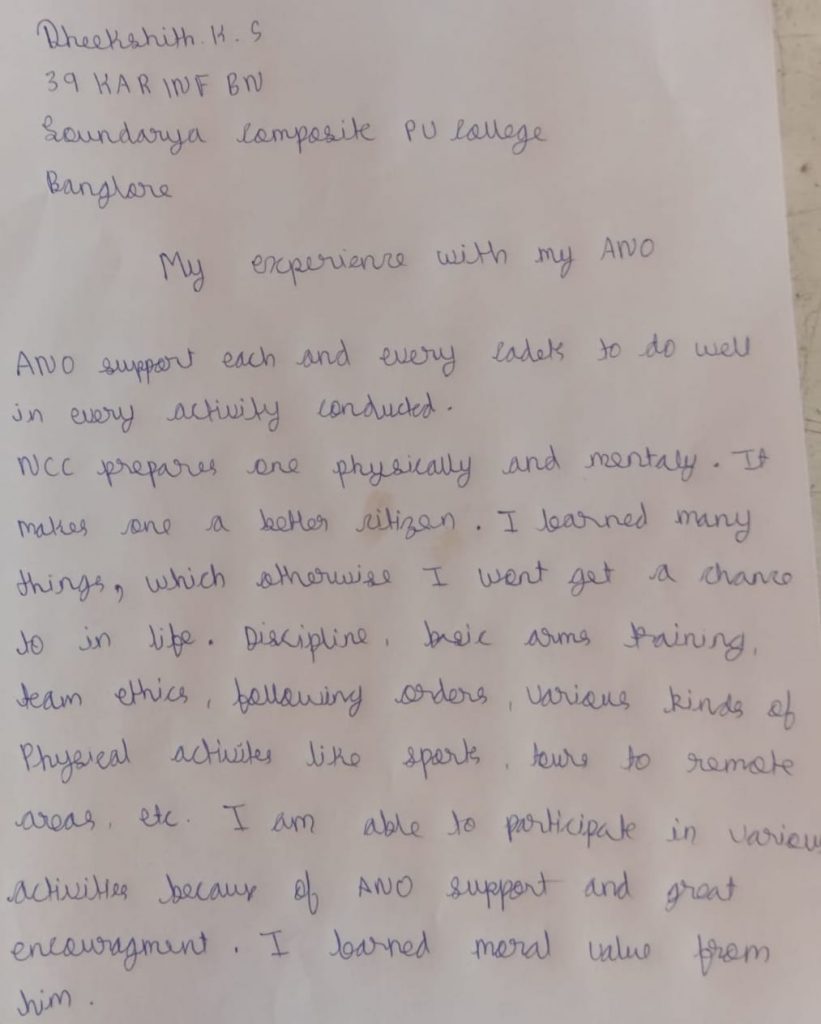 Dheekshith. K. S
39 KAR INF BN
Soundarya Composite PU College
Banglore
My experience with my ANO
ANO support each and every cadets to do well
in every activity conducted.
NCC prepares one physically and mentaly. It
makes one a better citizen. I learned many
things, which otherwise I wont get a chance
to in life. Discipline, basic arms training,
team ethics, following orders, various kinds of
Physical activites like sports, tours to remote
areas, etc. I am able to participate in various
activities because of ANO support and great
encouragment. I learned moral value from
him.